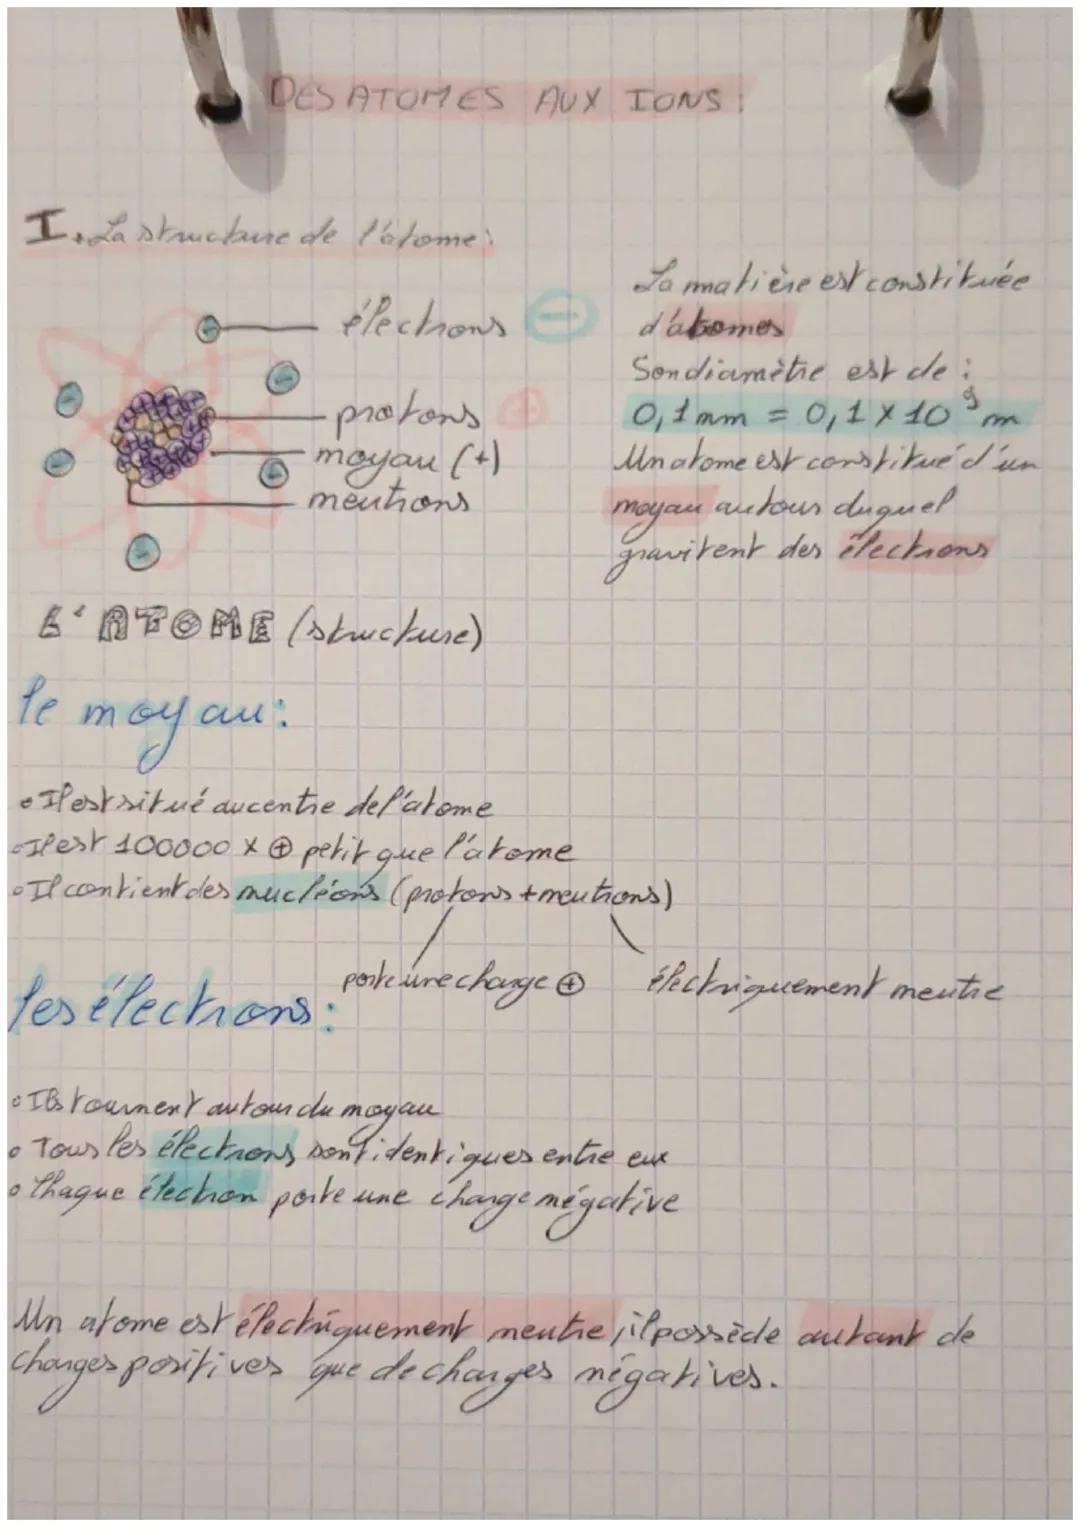 DES ATOMES AUX IONS :
I. La structure de l'atome :
électrons ⊖
protons ⊕
noyau (+)
neutrons
La matière est constituée
d'atomes
Son diamètre est de :
0,1 nm = 0,1 × 10⁻⁹ m
Un atome est constitué d'un
noyau autour duquel
gravitent des électrons
L'ATOME (structure)
le noyau :
• Il est situé au centre de l'atome
• Il est 100000 × ⊕ petit que l'atome
• Il contient des nucléons (protons + neutrons)
porte une charge ⊕
électriquement neutre
les électrons :
• Ils tournent autour du noyau
• Tous les électrons sont identiques entre eux
• Chaque électron porte une charge négative
Un atome est électriquement neutre, il possède autant de
charges positives que de charges négatives.